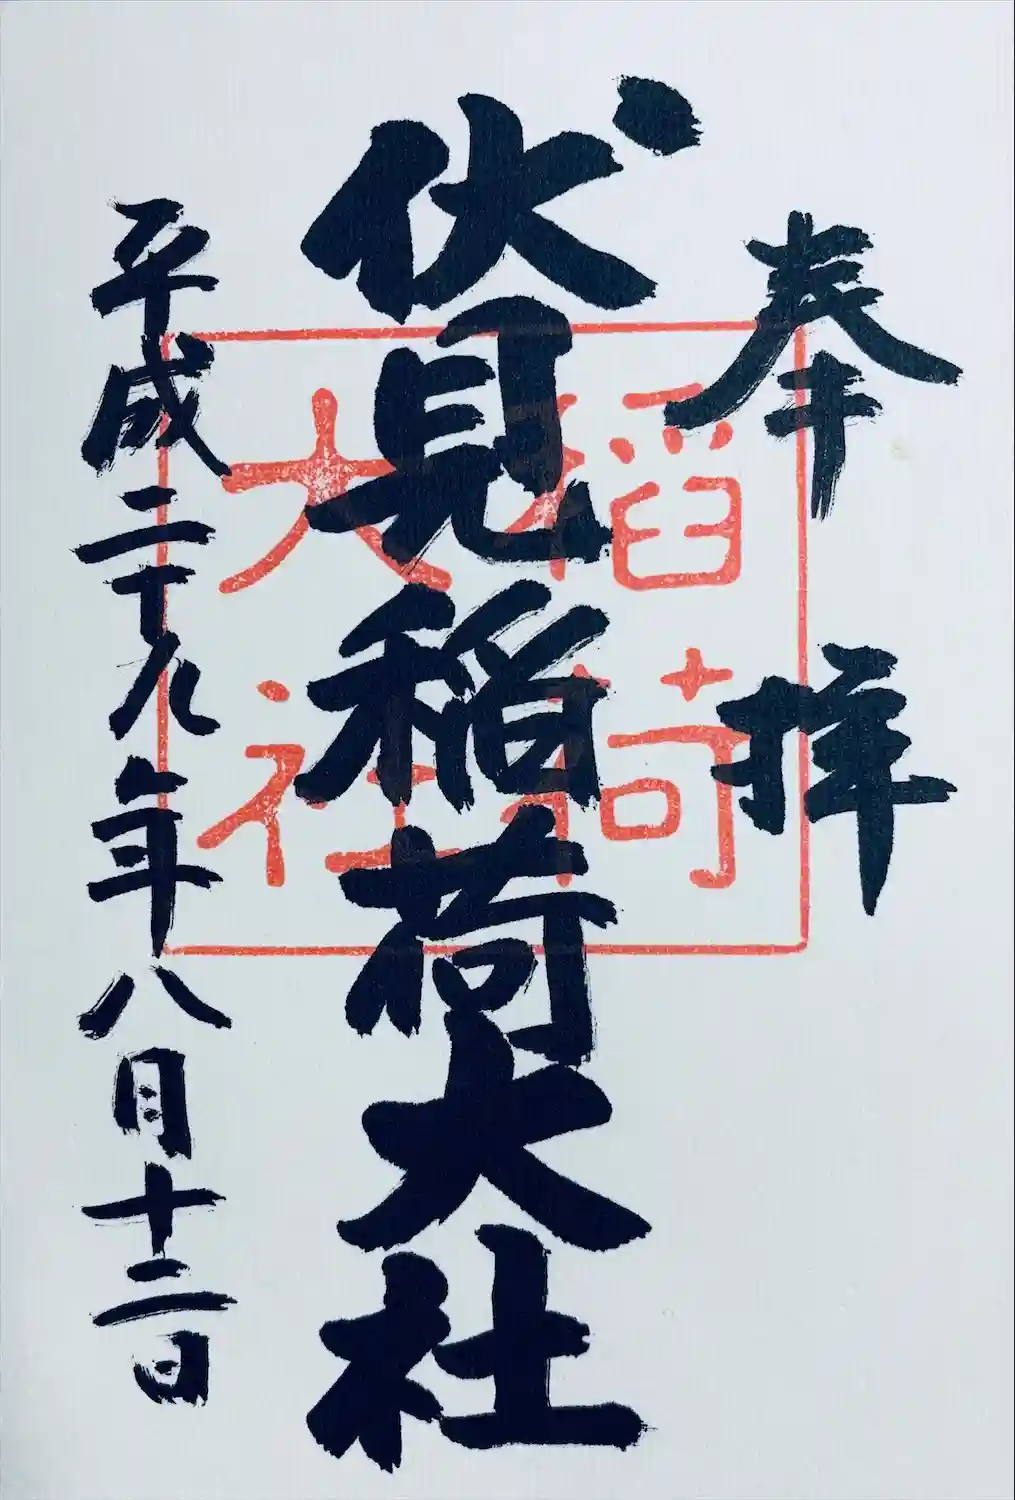 奉拝
伏見稲荷大社
稲荷
大社
平成二十九年八月十二日